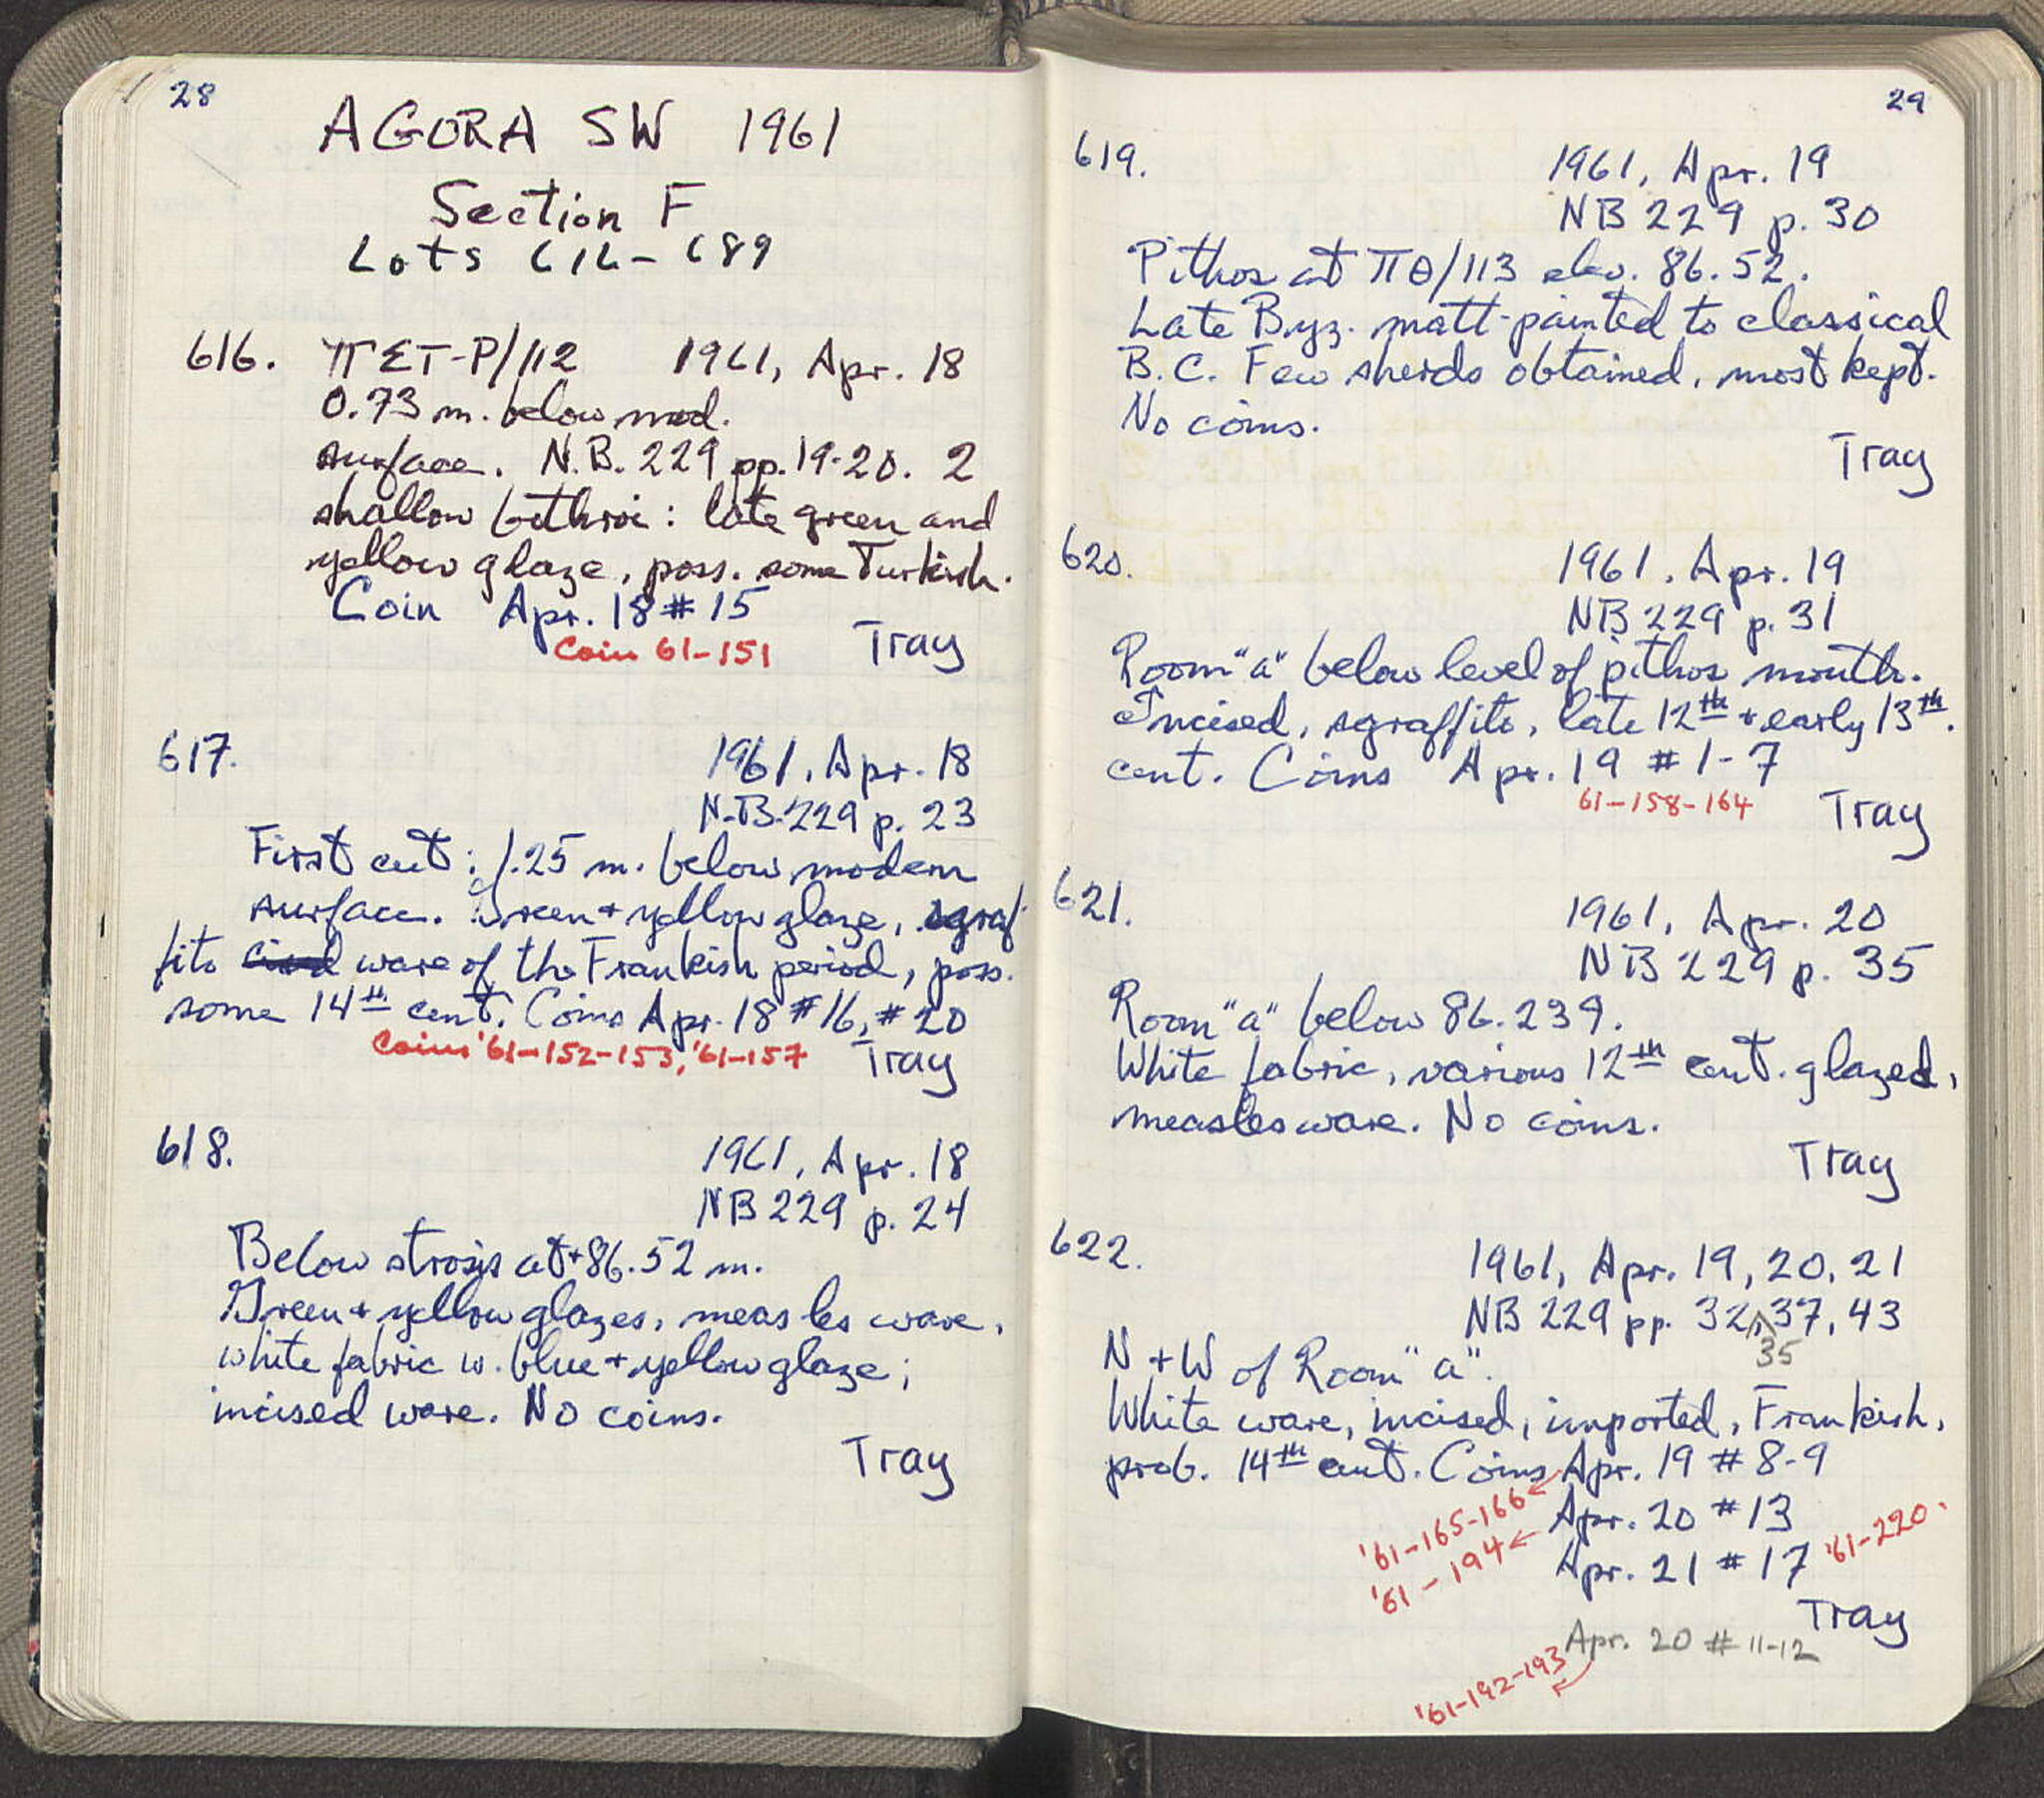 28
AGORA SW 1961
Section F
Lots 616-689
616. ΠΣΤ-Ρ/112 1961, Apr. 18
0.73 m. below mod.
surface. N.B. 229 pp. 19-20. 2
shallow bothroi: late green and
yellow glaze, poss. some Turkish.
Coin Apr. 18 # 15
Coin 61-151 Tray
617. 1961, Apr. 18
N.B. 229 p. 23
First cut: 1.25 m. below modern
surface. Green + yellow glaze, sgraf
fito ware of the Frankish period, poss.
some 14th cent. Coins Apr. 18 #16, #20
Coins '61-152-153, '61-157 Tray
618. 1961, Apr. 18
NB 229 p. 24
Below strosis at +86.52 m.
Green + yellow glazes, measles ware,
white fabric w. blue + yellow glaze;
incised ware. No coins.
Tray
29
619. 1961, Apr. 19
NB 229 p. 30
Pithos at ΠΘ/113 elev. 86.52.
Late Byz. matt-painted to classical
B.C. Few sherds obtained, most kept.
No coins.
Tray
620. 1961, Apr. 19
NB 229 p. 31
Room "a" below level of pithos mouth.
Incised, sgraffito, late 12th + early 13th.
cent. Coins Apr. 19 # 1-7
61-158-164 Tray
621. 1961, Apr. 20
NB 229 p. 35
Room "a" below 86.239.
White fabric, various 12th cent. glazed,
measles ware. No coins.
Tray
622. 1961, Apr. 19, 20, 21
NB 229 pp. 32, 37, 43
35
N + W of Room "a".
White ware, incised, imported, Frankish,
prob. 14th cent. Coins Apr. 19 # 8-9
'61-165-166 Apr. 20 # 13
'61-194 Apr. 21 # 17 '61-220.
Tray
Apr. 20 # 11-12
'61-192-193